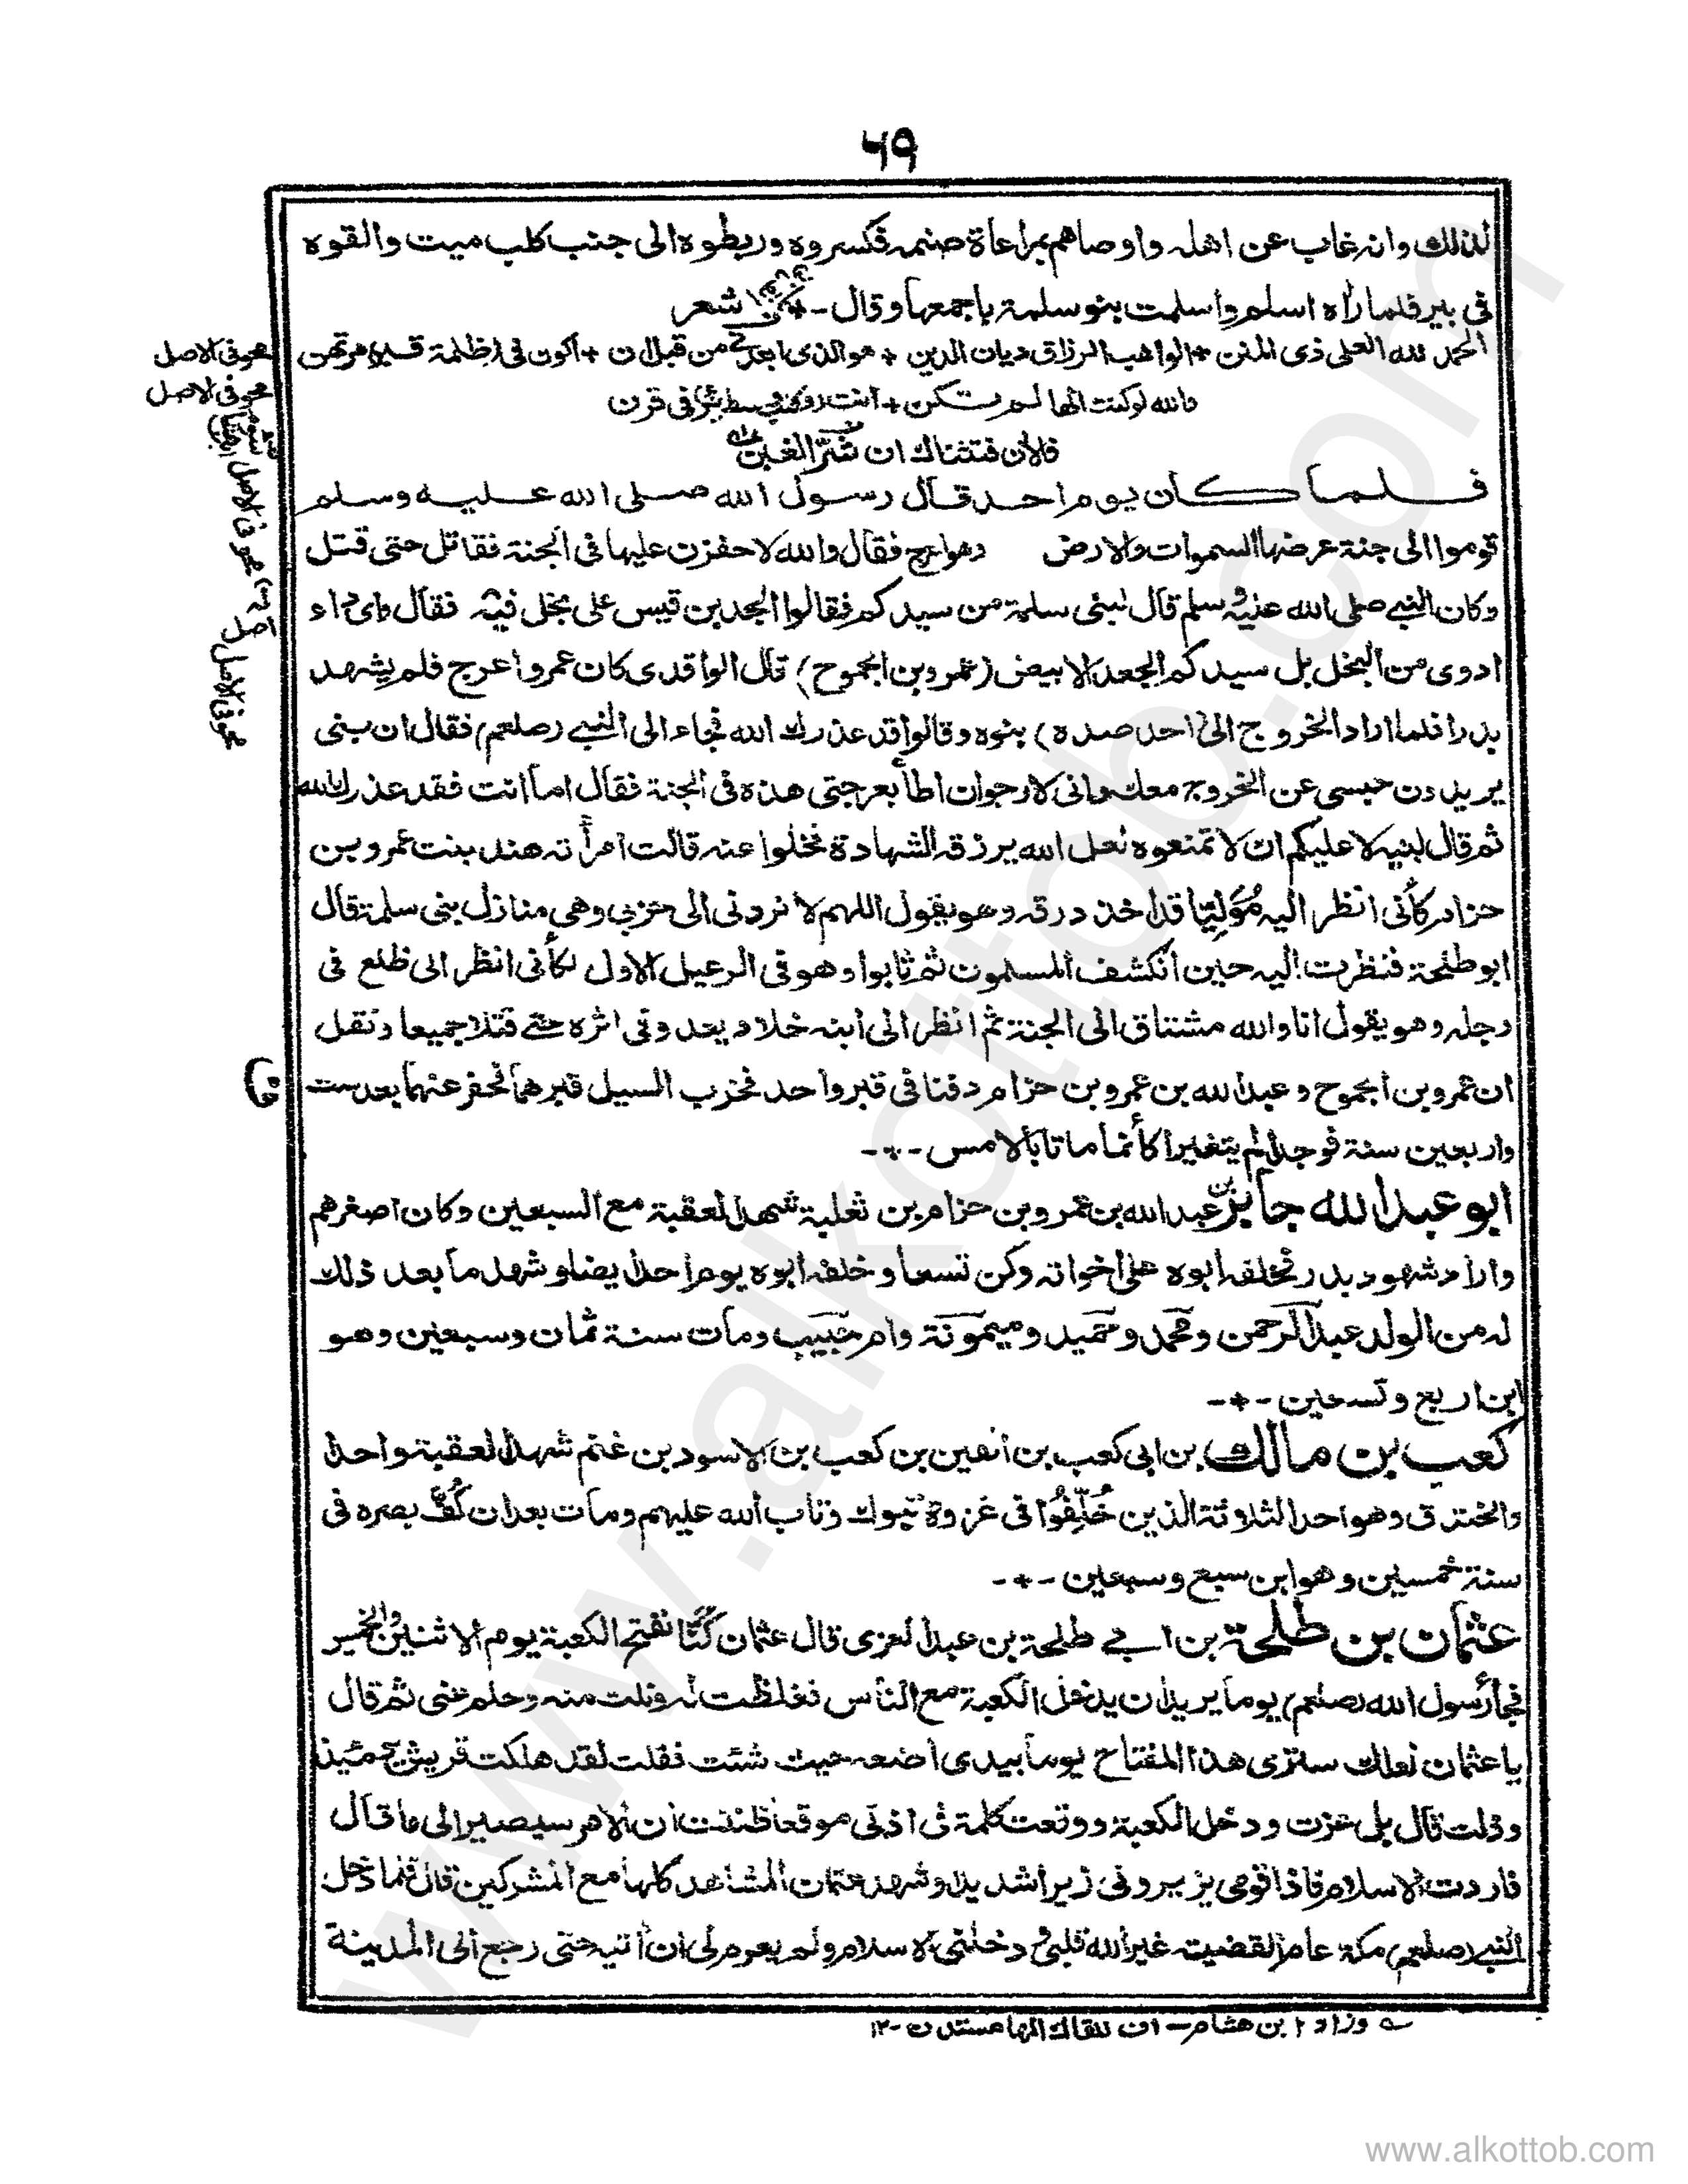 ٦٩
لذلك وانه غاب عن اهله واوصاهم بمراعاة صنمه فكسروه وربطوه الى جنب كلب ميت والقوه
فى بير فلما راٰه اسلم واسلمت بنو سلمة باجمعها وقال -+- شعر
الحمد لله العلى ذى المنن + الواهب الرزاق ديان الدين + هو الذى انقذنى من قبل ان + اكون فى ظلمة قبر مرتهن
والله لو كنت الٰها لم تكن + انت وكلب وسط بئر فى قرن
فالاٰن فتشناك ان شر الغبن
فلما كان يوم احد قال رسول الله صلى الله عليه وسلم
قوموا الى جنة عرضها السموات والارض وهو اعرج فقال والله لاحفزن عليها فى الجنة فقاتل حتى قتل
وكان النبى صلى الله عليه وسلم قال لبنى سلمة من سيدكم فقالوا الجد بن قيس على بخل فيه فقال واى داء
ادوى من البخل بل سيدكم الجعد الابيض (عمرو بن الجموح) قال الواقدى كان عمرو اعرج فلم يشهد
بدرا فلما اراد الخروج الى (احد صده) بنوه وقالوا قد عذرك الله فجاء الى النبى (صلعم) فقال ان بنى
يريدون حبسى عن الخروج معك وانى لارجو ان اطأ بعرجتى هذه فى الجنة فقال اما انت فقد عذرك الله
ثم قال لبنيه لا عليكم ان لا تمنعوه لعل الله يرزقه الشهادة فخلوا عنه قالت امرأته هند بنت عمرو بن
حزام كأنى انظر اليه مُوَلِيًّا قد اخذ درقه وهو يقول اللهم لا تردنى الى خزبى وهى منازل بنى سلمة قال
ابو طلحة فنظرت اليه حين انكشف المسلمون ثم ثابوا وهو فى الرعيل الاول لكأنى انظر الى ظلع فى
رجله وهو يقول انا والله مشتاق الى الجنة ثم انظر الى ابنه خلاد يعد وفى اثره حتى قتلا جميعا ونقل
ان عمرو بن الجموح وعبد الله بن عمرو بن حزام دفنا فى قبر واحد فخرب السيل قبرهما فحفر عنهما بعد ست
واربعين سنة فوجدا لم يتغيرا كأنما ماتا بالامس -+-
ابو عبد الله جابر بن عبد الله بن عمرو بن حزام بن ثعلبة شهد العقبة مع السبعين وكان اصغرهم
واراد شهود بدر فخلفه ابوه على اخواته وكن تسعا وخلفه ابوه يوم احد ايضا وشهد ما بعد ذلك
له من الولد عبد الرحمن ومحمد وحميد وميمونة وام حبيب ومات سنة ثمان وسبعين وهو
ابن اربع وتسعين -+-
كعب بن مالك بن ابى كعب بن القين بن كعب بن الاسود بن غنم شهد العقبة واحدا
والخندق وهو احد الثلاثة الذين خُلِّفُوا فى غزوة تبوك وتاب الله عليهم ومات بعد ان كُفَّ بصره فى
سنة خمسين وهو ابن سبع وسبعين -+-
عثمان بن طلحة بن ابى طلحة بن عبد العزى قال عثمان كُنَّا نفتح الكعبة يوم الاثنين والخميس
فجأ رسول الله (صلعم) يوما يريد ان يدخل الكعبة مع الناس فغلظت له ونلت منه وحلم عنى ثم قال
يا عثمان لعلك سترى هذا المفتاح يوما بيدى اضعه حيث شئت فقلت لقد هلكت قريش حينئذ
وذلت قال بلى عزت ودخل الكعبة ووقعت كلمة فى اذنى موقعا ظننت ان الامر سيصير الى ما قال
فاردت الاسلام فاذا قومى يزبرونى زبرا شديدا وشهد عثمان المشاهد كلها مع المشركين قال فلما دخل
النبى (صلعم) مكة عام القضية غير الله قلبى ودخلنى الاسلام ولم يعزم لى ان اٰتيه حتى رجع الى المدينة
محو فى الاصل
محو فى الاصل
محو فى الاصل
محو فى الاصل
وزاد ابن هشام - اف للقاك الٰها مستدن - ١٢
www.alkottob.com
www.alkottob.com